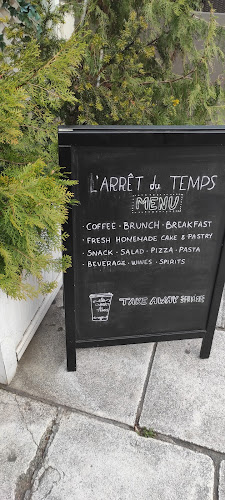 L'ARRÊT du TEMPS
MENU
· COFFEE · BRUNCH · BREAKFAST
· FRESH HOMEMADE CAKE & PASTRY
· SNACK · SALAD · PIZZA · PASTA
· BEVERAGE · WINES · SPIRITS
TAKE AWAY